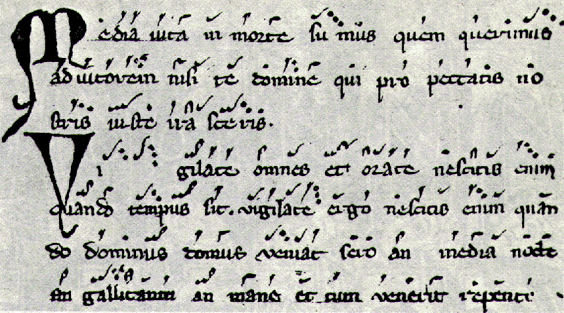 Media vita in morte su mus quem querimus
adiutorem nisi te domine qui pro peccatis no
stris iuste irasceris.
Vi gilate omnes et orate nescitis enim
quando tempus sit. vigilate ergo nescitis enim quan
do dominus domus veniat sero an media nocte
an gallicantu an mane et cum venerit repente